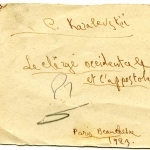 C. Karalevskij
Le clergé occidental
et l'apostolat
Paris Beauchesne
1929.